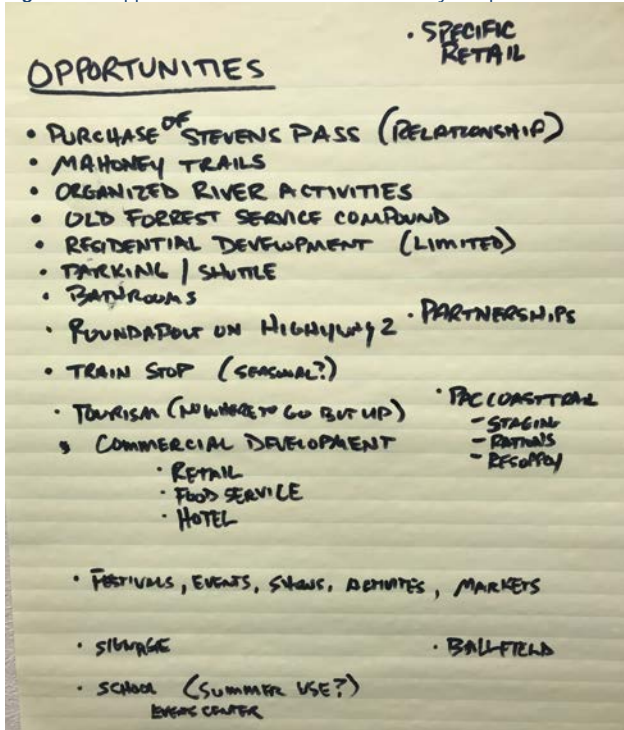 • SPECIFIC
RETAIL
OPPORTUNITIES
• PURCHASE OF STEVENS PASS (RELATIONSHIP)
• MAHONEY TRAILS
• ORGANIZED RIVER ACTIVITIES
• OLD FORREST SERVICE COMPOUND
• RESIDENTIAL DEVELOPMENT (LIMITED)
• PARKING / SHUTTLE
• BATHROOMS
• ROUNDABOUT ON HIGHWAY 2
• PARTNERSHIPS
• TRAIN STOP (SEASONAL?)
• TOURISM (NOWHERE TO GO BUT UP)
• PAC COAST TRAIL
- STAGING
- RATIONS
- RESUPPLY
• COMMERCIAL DEVELOPMENT
• RETAIL
• FOOD SERVICE
• HOTEL
• FESTIVALS, EVENTS, SHOWS, ACTIVITES, MARKETS
• SIGNAGE
• BALLFIELD
• SCHOOL (SUMMER USE?)
EVENT CENTER